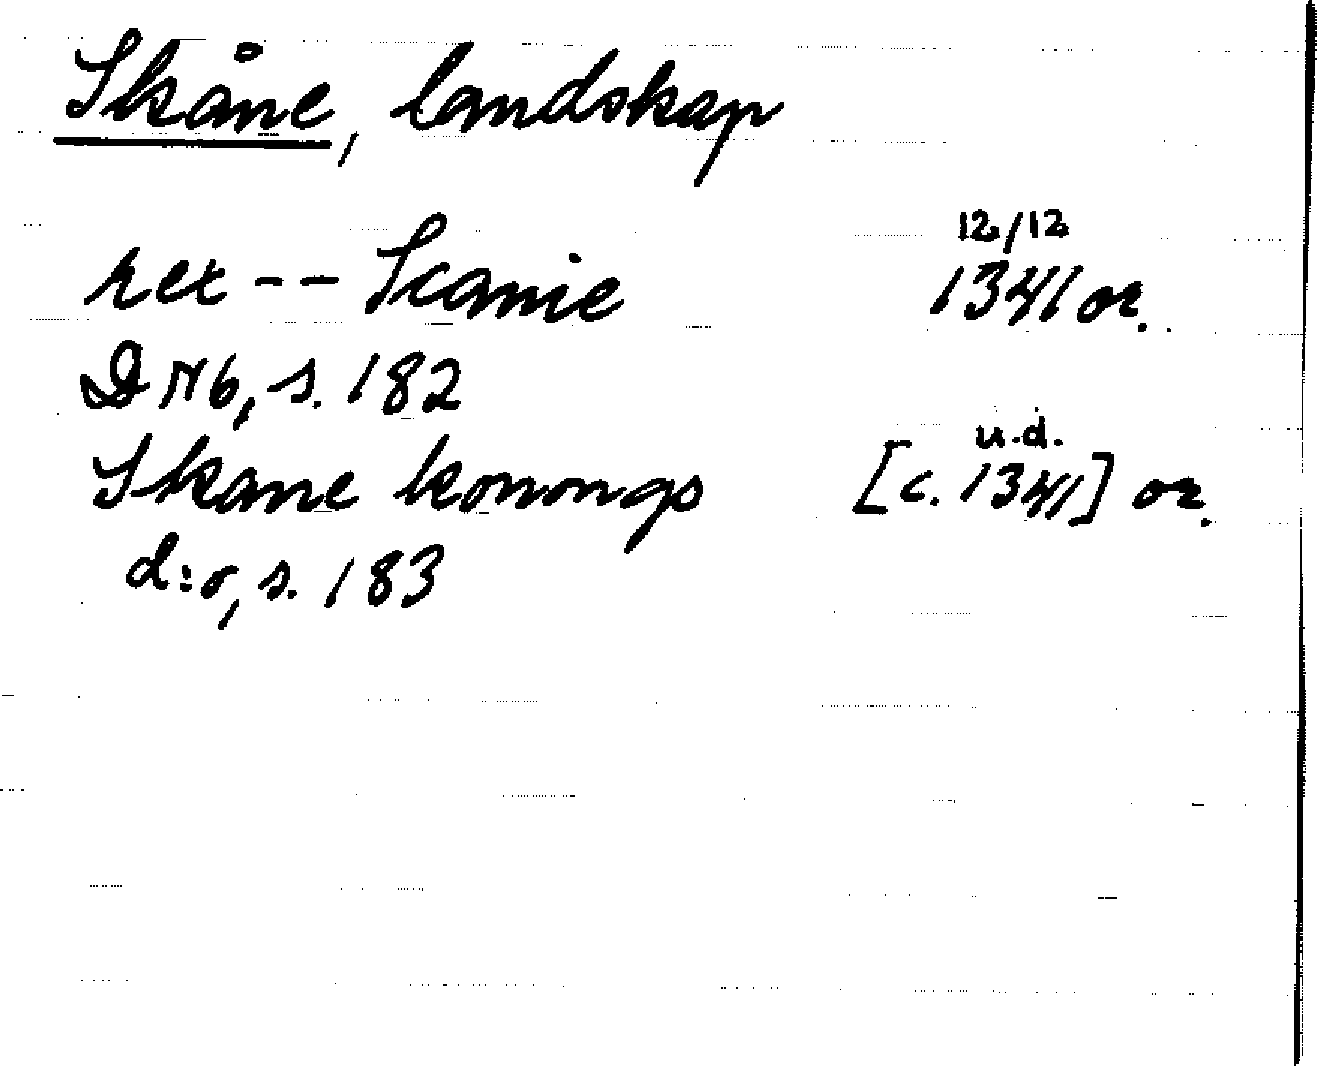 Skåne, landskap
12/12
rex -- Scanie 1341 or.
DN6, s. 182
u.d.
Skane konongs [c. 1341] or.
d:o, s. 183